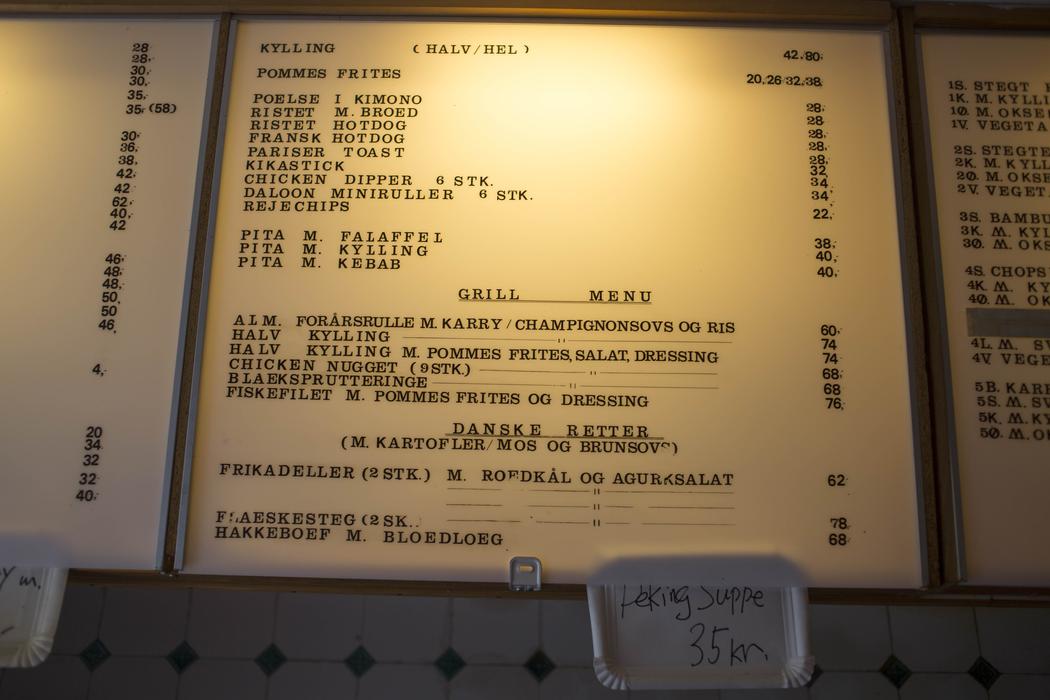 28
28,
30,
30,
35,
35, (58)
30,
36,
38,
42,
42
62,
40,
42
46,
48,
48,
50,
50
46,
4,
20
34
32
32
40,
KYLLING ( HALV/HEL ) 42,80,
POMMES FRITES 20,26 32,38,
POELSE I KIMONO 28,
RISTET M. BROED 28
RISTET HOTDOG 28,
FRANSK HOTDOG 28,
PARISER TOAST 28,
KIKASTICK 32,
CHICKEN DIPPER 6 STK. 34
DALOON MINIRULLER 6 STK. 34
REJECHIPS 22,
PITA M. FALAFFEL 38,
PITA M. KYLLING 40,
PITA M. KEBAB 40,
GRILL MENU
ALM. FORÅRSRULLE M. KARRY / CHAMPIGNONSOVS OG RIS 60,
HALV KYLLING " 74
HALV KYLLING M. POMMES FRITES, SALAT, DRESSING 74
CHICKEN NUGGET (9 STK.) " 68,
BLAEKSPRUTTERINGE " 68
FISKEFILET M. POMMES FRITES OG DRESSING 76,
DANSKE RETTER
(M. KARTOFLER/MOS OG BRUNSOVS)
FRIKADELLER (2 STK.) M. ROEDKÅL OG AGURKSALAT 62
"
"
FLAESKESTEG (2 SK.. " 78,
HAKKEBOEF M. BLOEDLOEG 68,
1S. STEGT
1K. M. KYLLI
1Ø. M. OKSE
1V. VEGETA
2S. STEGTE
2K. M. KYLL
2Ø. M. OKSE
2V. VEGET
3S. BAMBU
3K. M. KYL
3Ø. M. OKS
4S. CHOPS
4K. M. KY
4Ø. M. OK
4L. M. SV
4V VEGE
5B. KARR
5S. M. SV
5K. M. KY
5Ø. M. OK
m.
Peking Suppe
35 kr.